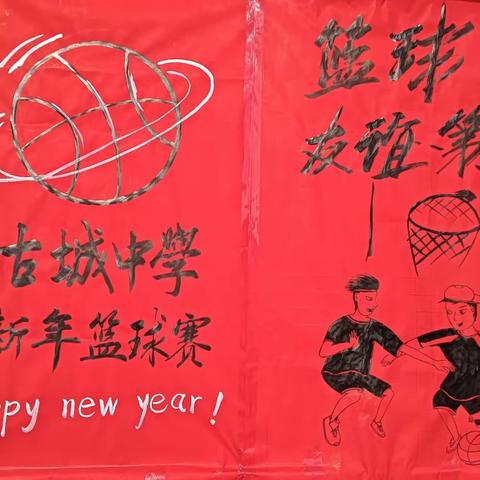 古城中學
新年篮球赛
ppy new year!
篮球
友谊第